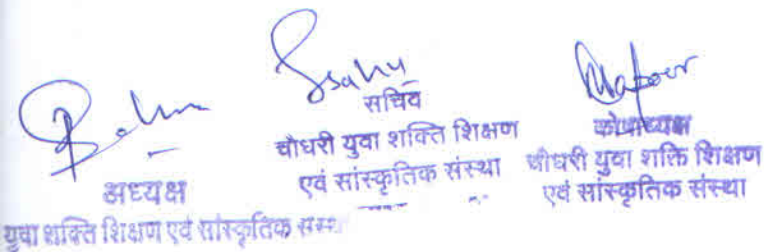 अध्यक्ष
युवा शक्ति शिक्षण एवं सांस्कृतिक
सचिव
चौधरी युवा शक्ति शिक्षण
एवं सांस्कृतिक संस्था
कोषाध्यक्ष
चौधरी युवा शक्ति शिक्षण
एवं सांस्कृतिक संस्था